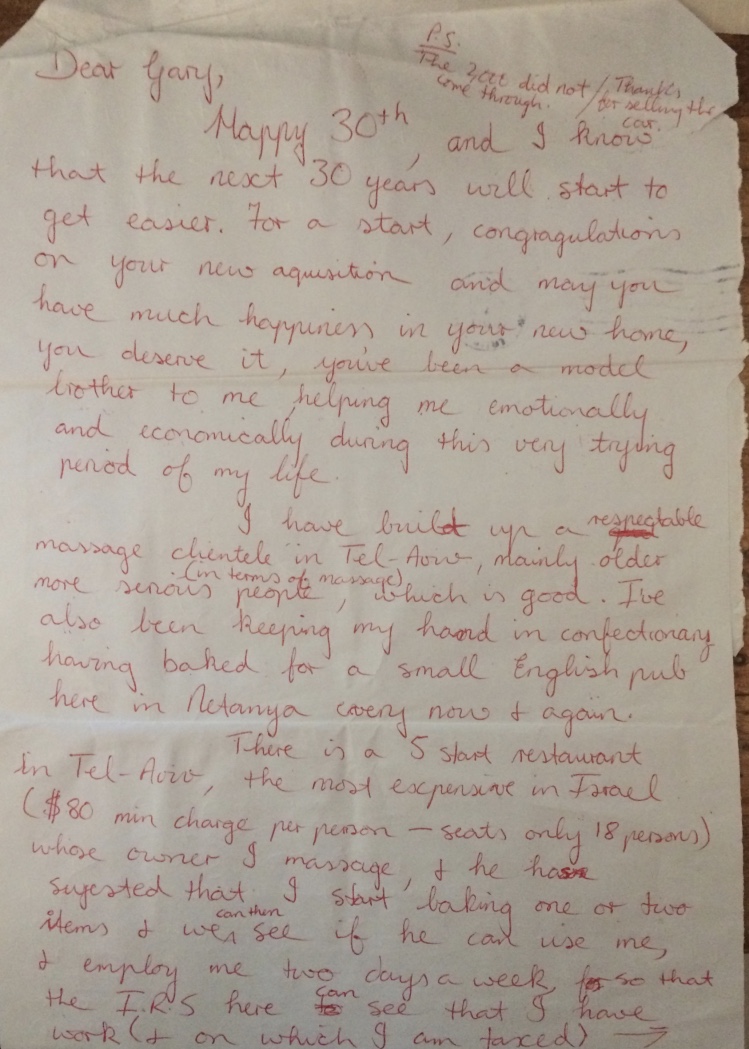 P.S.
The did not / Thanks
come through. / for selling the
car.
Dear Gary,
Happy 30th, and I know
that the next 30 years will start to
get easier. For a start, congragulations
on your new aquisition and may you
have much happiness in your new home,
you deserve it, you've been a model
brother to me, helping me emotionally
and economically during this very trying
period of my life.
I have build up a respectable
massage clientele in Tel-Aviv, mainly older
more serious people (in terms of massage), which is good. I've
also been keeping my hand in confectionary
having baked for a small English pub
here in Netanya every now & again.
There is a 5 start restaurant
in Tel-Aviv, the most expensive in Israel
($80 min charge per person - seats only 18 persons)
whose owner I massage, & he has
sugested that I start baking one or two
items & we can then see if he can use me,
& employ me two days a week, so that
the I.R.S here can see that I have
work (& on which I am taxed) →